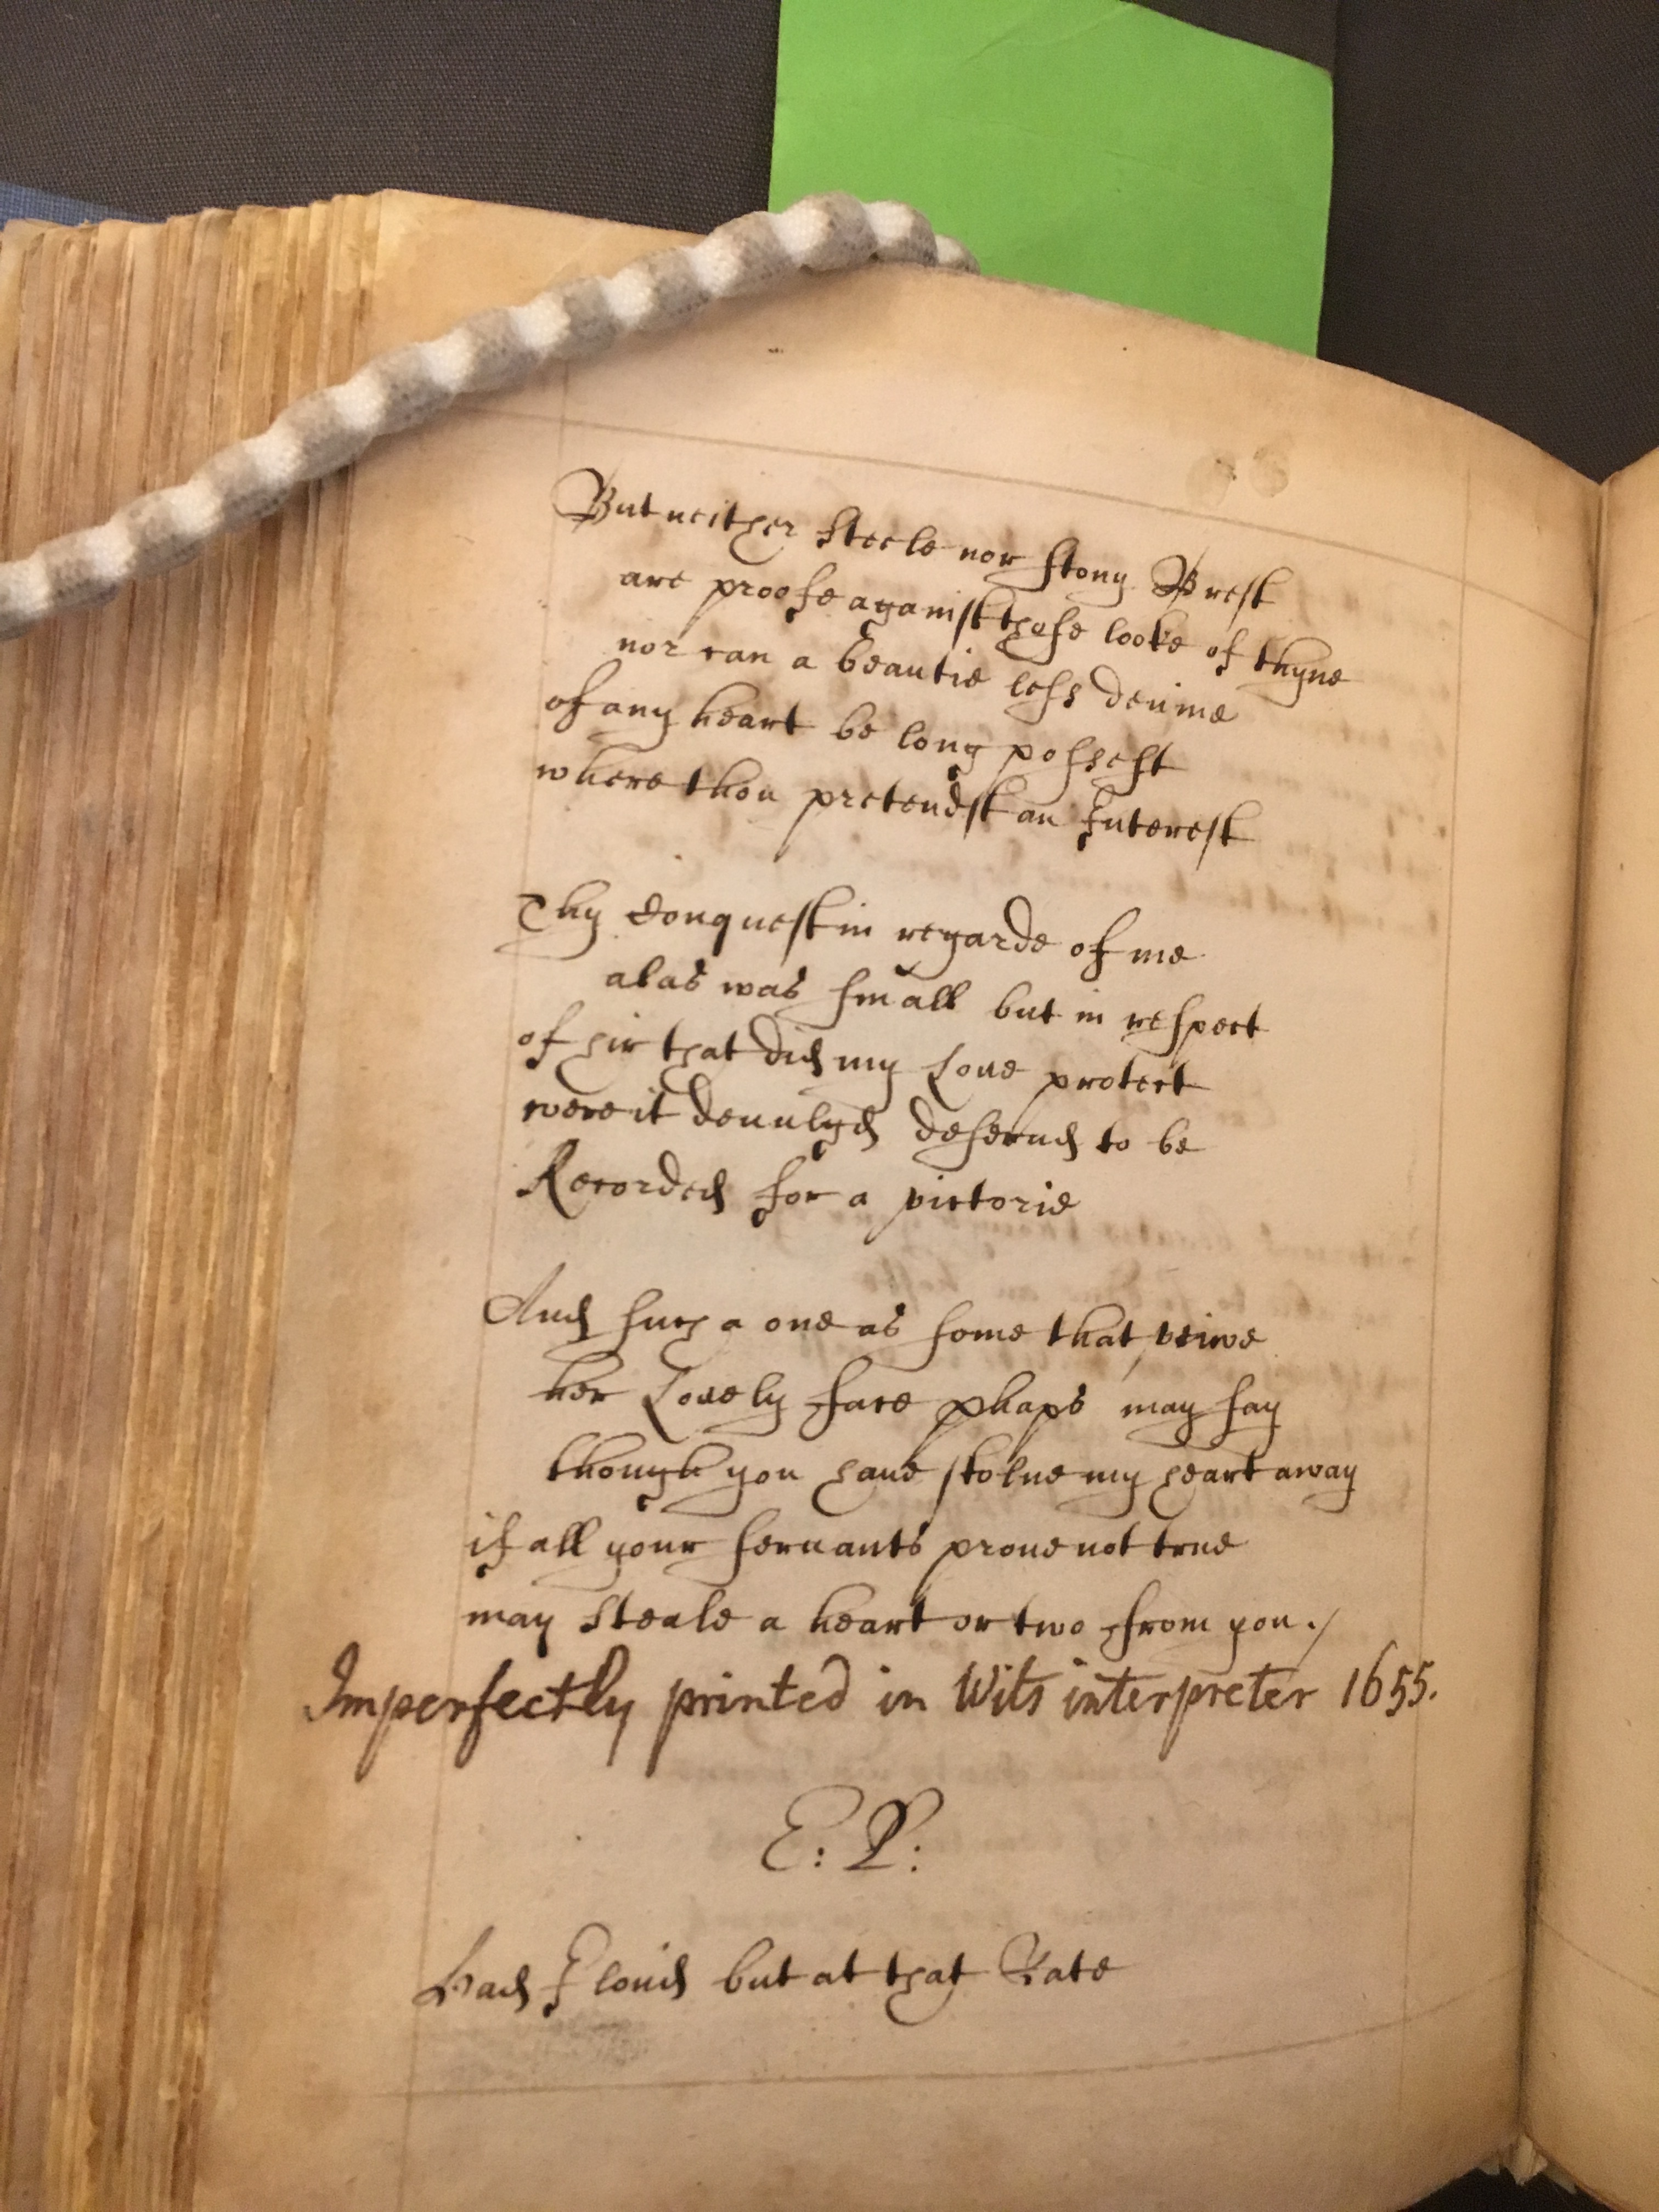 But neither Steele nor stony Brest
are proofe against those looke of thyne
nor can a beautie less deuine
of any heart be long possest
where thou pretendst an Interest
Thy Conquest in regarde of me
alas was small but in respect
of hir that did my Loue protect
were it deuulgd deserud to be
Recorded for a victorie
And such a one as some that veiwe
her Louely face phaps may say
though you haue stolne my heart away
if all your seruants proue not true
may Steale a heart or two from you./
Imperfectly printed in Wits interpreter 1655.
E: P:
Had I louid but at that Rate